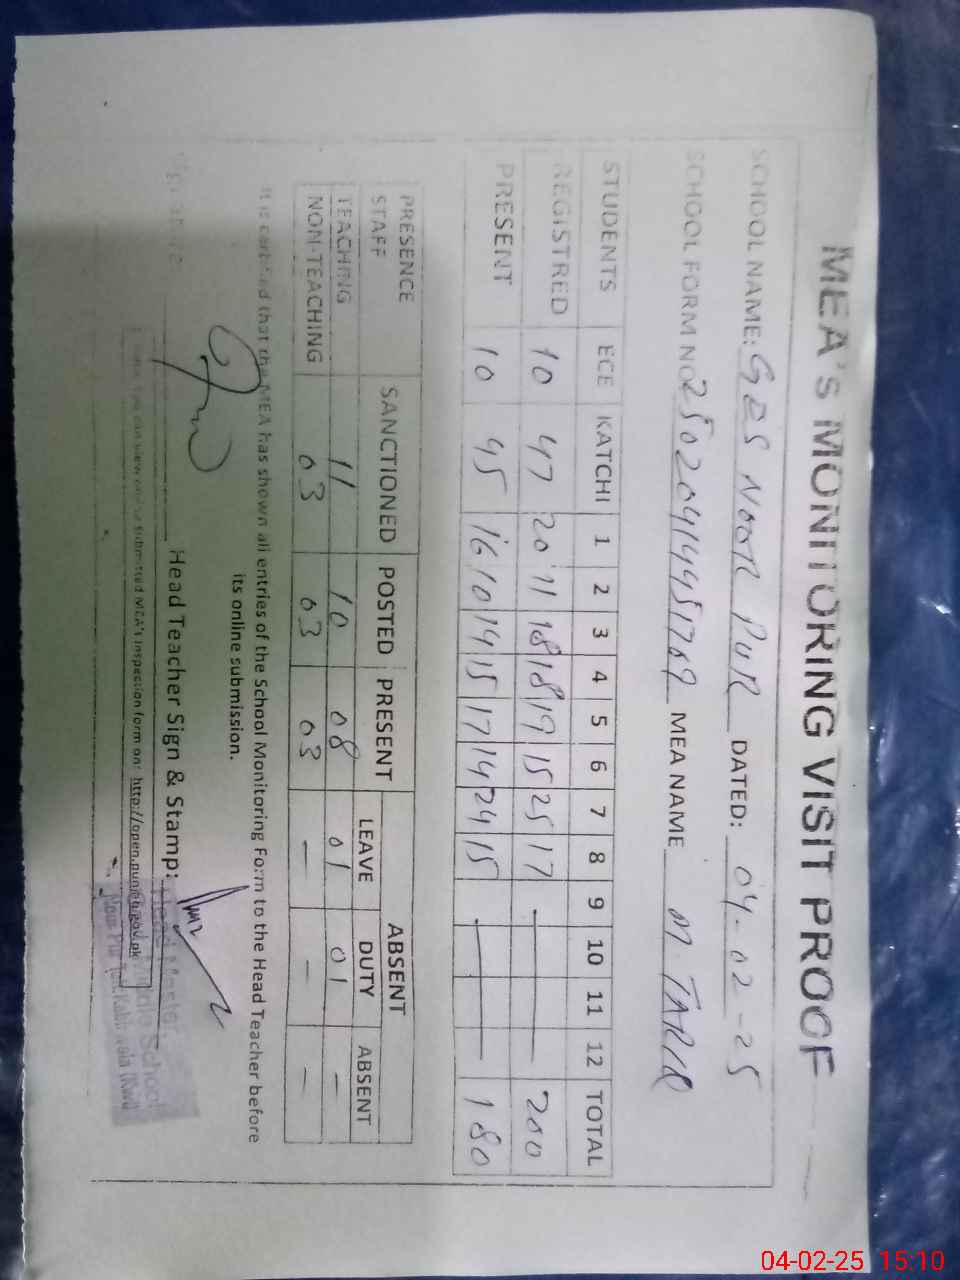 MEA'S MONITORING VISIT PROOF
SCHOOL NAME: GES NOOR PUR DATED: 04-02-25
SCHOOL FORM NO 25020414451769 MEA NAME M. TARIQ
STUDENTS ECE KATCHI 1 2 3 4 5 6 7 8 9 10 11 12 TOTAL
REGISTRED 10 47 20 11 18 18 19 15 25 17 — 200
PRESENT 10 45 16 10 14 15 17 14 24 15 — 180
PRESENCE STAFF SANCTIONED POSTED PRESENT ABSENT
LEAVE DUTY ABSENT
TEACHING 11 10 08 01 01 –
NON-TEACHING 03 03 03 – – –
It is certified that the MEA has shown all entries of the School Monitoring Form to the Head Teacher before
its online submission.
Head Teacher Sign & Stamp:
Head Master
Middle School
Noor Pur Kabirwala (Kwl)
you can view online submitted MEA's inspection form on: http://open.punjab.gov.pk
04-02-25 15:10